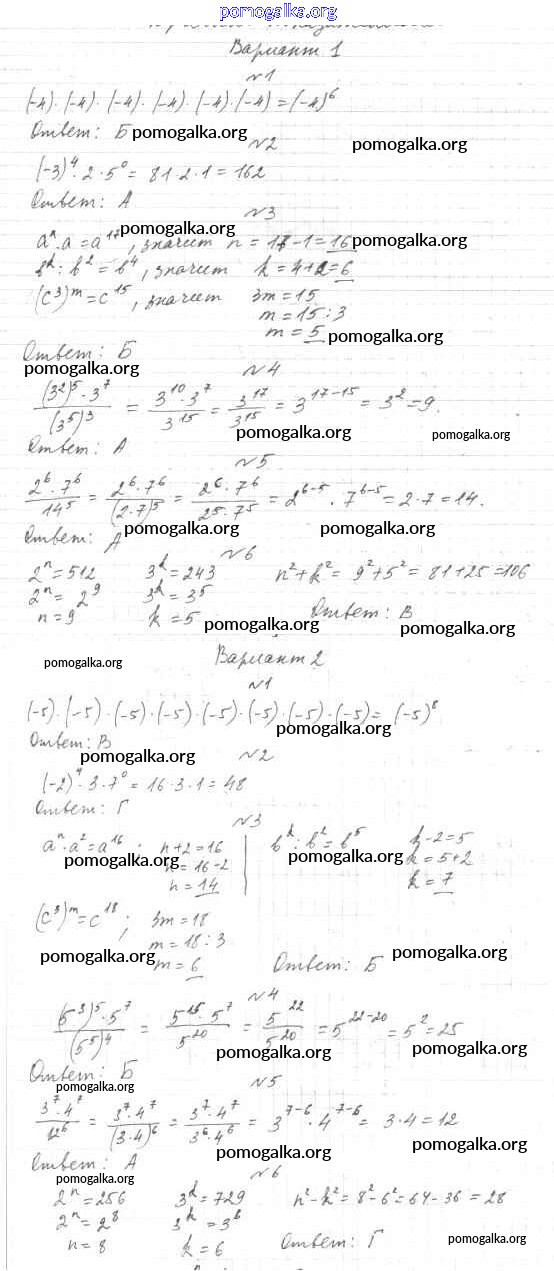 pomogalka.org
Вариант 1
№1
(-4)·(-4)·(-4)·(-4)·(-4)·(-4)=(-4)⁶
Ответ: Б pomogalka.org
№2 pomogalka.org
(-3)⁴·2·5⁰=81·2·1=162
Ответ: А
№3 pomogalka.org
aⁿ·a=a¹⁷, значит n=17-1=16 pomogalka.org
bᵏ:b²=b⁴, значит k=4+2=6
(c³)ᵐ=c¹⁵, значит 3m=15
m=15:3
m=5 pomogalka.org
Ответ: Б
pomogalka.org №4
(3²)⁵·3⁷/(5⁵)³ = 3¹⁰·3⁷/3¹⁵ = 3¹⁷/3¹⁵ = 3¹⁷⁻¹⁵=3²=9.
pomogalka.org pomogalka.org
Ответ: А
№5
2⁶·7⁶/14⁵ = 2⁶·7⁶/(2·7)⁵ = 2⁶·7⁶/25·7⁵ = 2⁶⁻⁵·7⁶⁻⁵=2·7=14.
pomogalka.org pomogalka.org
Ответ: А
№6
2ⁿ=512 3ᵏ=243 n²+k²=9²+5²=81+25=106
2ⁿ=2⁹ 3ᵏ=3⁵
n=9 k=5 pomogalka.org Ответ: В pomogalka.org
pomogalka.org Вариант 2
№1
(-5)·(-5)·(-5)·(-5)·(-5)·(-5)·(-5)·(-5)=(-5)⁸
pomogalka.org
Ответ: В
pomogalka.org №2
(-2)⁴·3·7⁰=16·3·1=48
Ответ: Г
№3
aⁿ·a²=a¹⁶; n+2=16 bᵏ:b²=b⁵ k-2=5
pomogalka.org n=16-2 pomogalka.org k=5+2
n=14 k=7
(c³)ᵐ=c¹⁸; 3m=18
m=18:3
pomogalka.org m=6 Ответ: Б pomogalka.org
№4
(5³)⁵·5⁷/(5⁵)⁴ = 5¹⁵·5⁷/5²⁰ = 5²²/5²⁰ = 5²²⁻²⁰=5²=25
pomogalka.org pomogalka.org
Ответ: Б
pomogalka.org №5
3⁷·4⁷/12⁶ = 3⁷·4⁷/(3·4)⁶ = 3⁷·4⁷/3⁶·4⁶ = 3⁷⁻⁶·4⁷⁻⁶=3·4=12
pomogalka.org pomogalka.org
Ответ: А
pomogalka.org №6
2ⁿ=256 3ᵏ=729 n²-k²=8²-6²=64-36=28
2ⁿ=2⁸ 3ᵏ=3⁶
n=8 k=6 Ответ: Г pomogalka.org